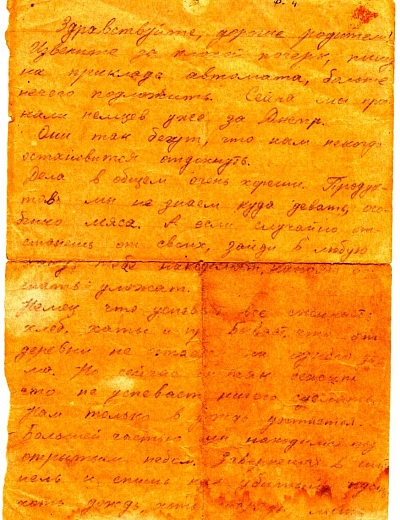 Здравствуйте, дорогие родители!
Извените за плохой почерк, пишу
на приклада автомата, больше
нечего подложить. Сейча мы про
гнали немцев уже за Днепр.
Они так бегут, что нам некогда
остановится отдохнуть.
Дела в общем очень хороши. Продук
тов мы не знаем куда девать, осо-
бенно мяса. А если случайно от
станешь от своих, зайди в любую
тебя накормят, напоят и
спать уложат.
Немец что успевает все сжигает:
хлеб, хаты и пр. Бывает, что от
деревни не остается ни одного до
ма. Но сейчас
что не успевает ничего сделать.
Нам только в
Большей частью мы находимся под
открытым небом. Завернешся в ши
нель и спишь как убитый,
хоть дождь, хоть